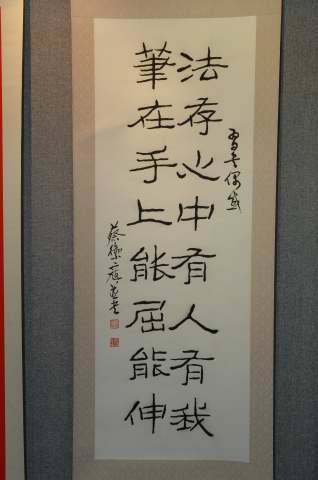 習書偶感
法存心中有人有我
筆在手上能屈能伸